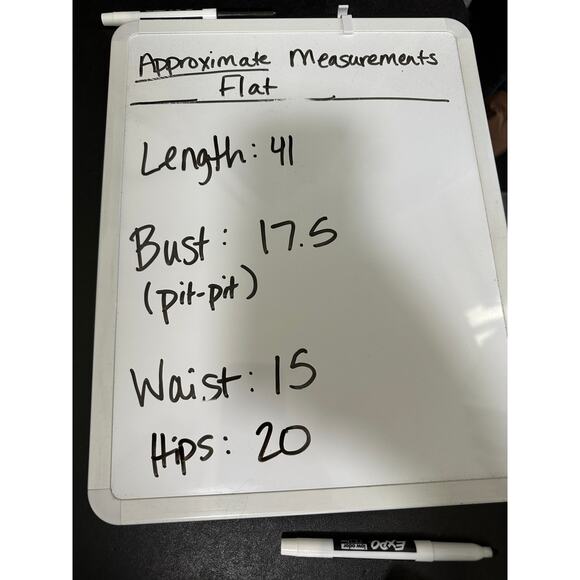 Approximate Measurements
Flat
Length: 41
Bust: 17.5
(pit-pit)
Waist: 15
Hips: 20
EXPO
low odor